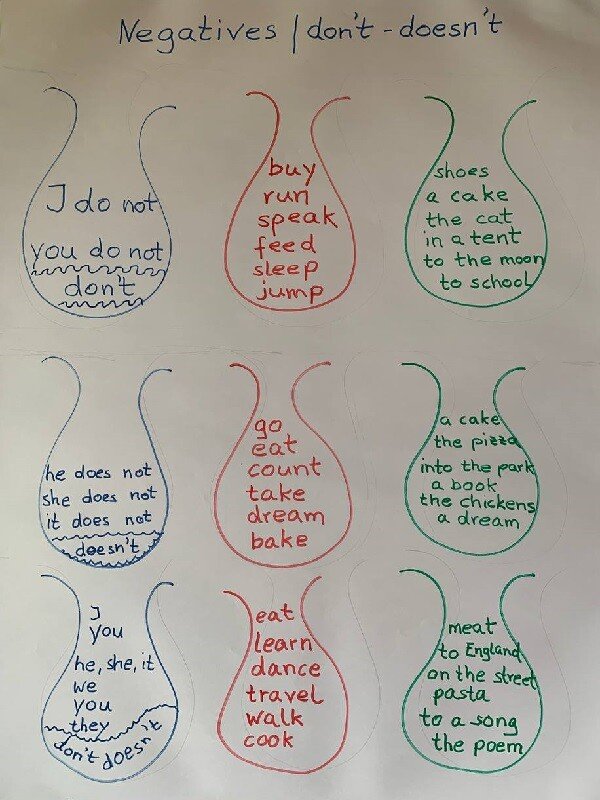 Negatives | don't - doesn't
I do not
you do not
don't
buy
run
speak
feed
sleep
jump
shoes
a cake
the cat
in a tent
to the moon
to school
he does not
she does not
it does not
doesn't
go
eat
count
take
dream
bake
a cake
the pizza
into the park
a book
the chickens
a dream
I
you
he, she, it
we
you
they
don't doesn't
eat
learn
dance
travel
walk
cook
meat
to England
on the street
pasta
to a song
the poem